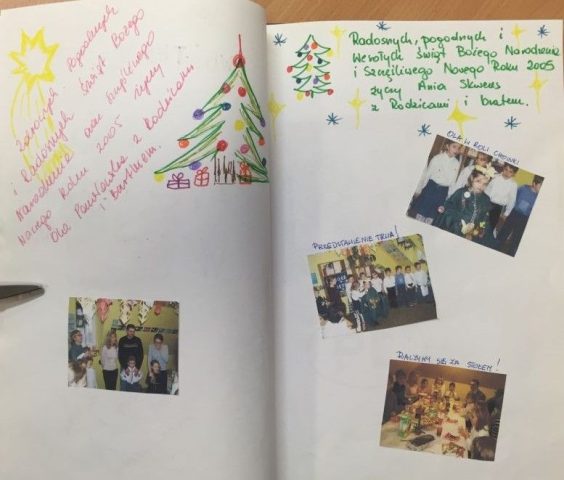 Zdrowych, Pogodnych
i Radosnych Świąt Bożego
Narodzenia oraz szczęśliwego
Nowego Roku 2005 życzy
Ola Pawłowska z Rodzicami
i Bartkiem.
Radosnych, pogodnych i
Wesołych świąt Bożego Narodzenia
i Szczęśliwego Nowego Roku 2005
życzy Ania Skwers
z Rodzicami i bratem.
OLA W ROLI CHOINKI
PRZEDSTAWIENIE TRWA!
RADUJMY SIĘ ZA STOŁEM!